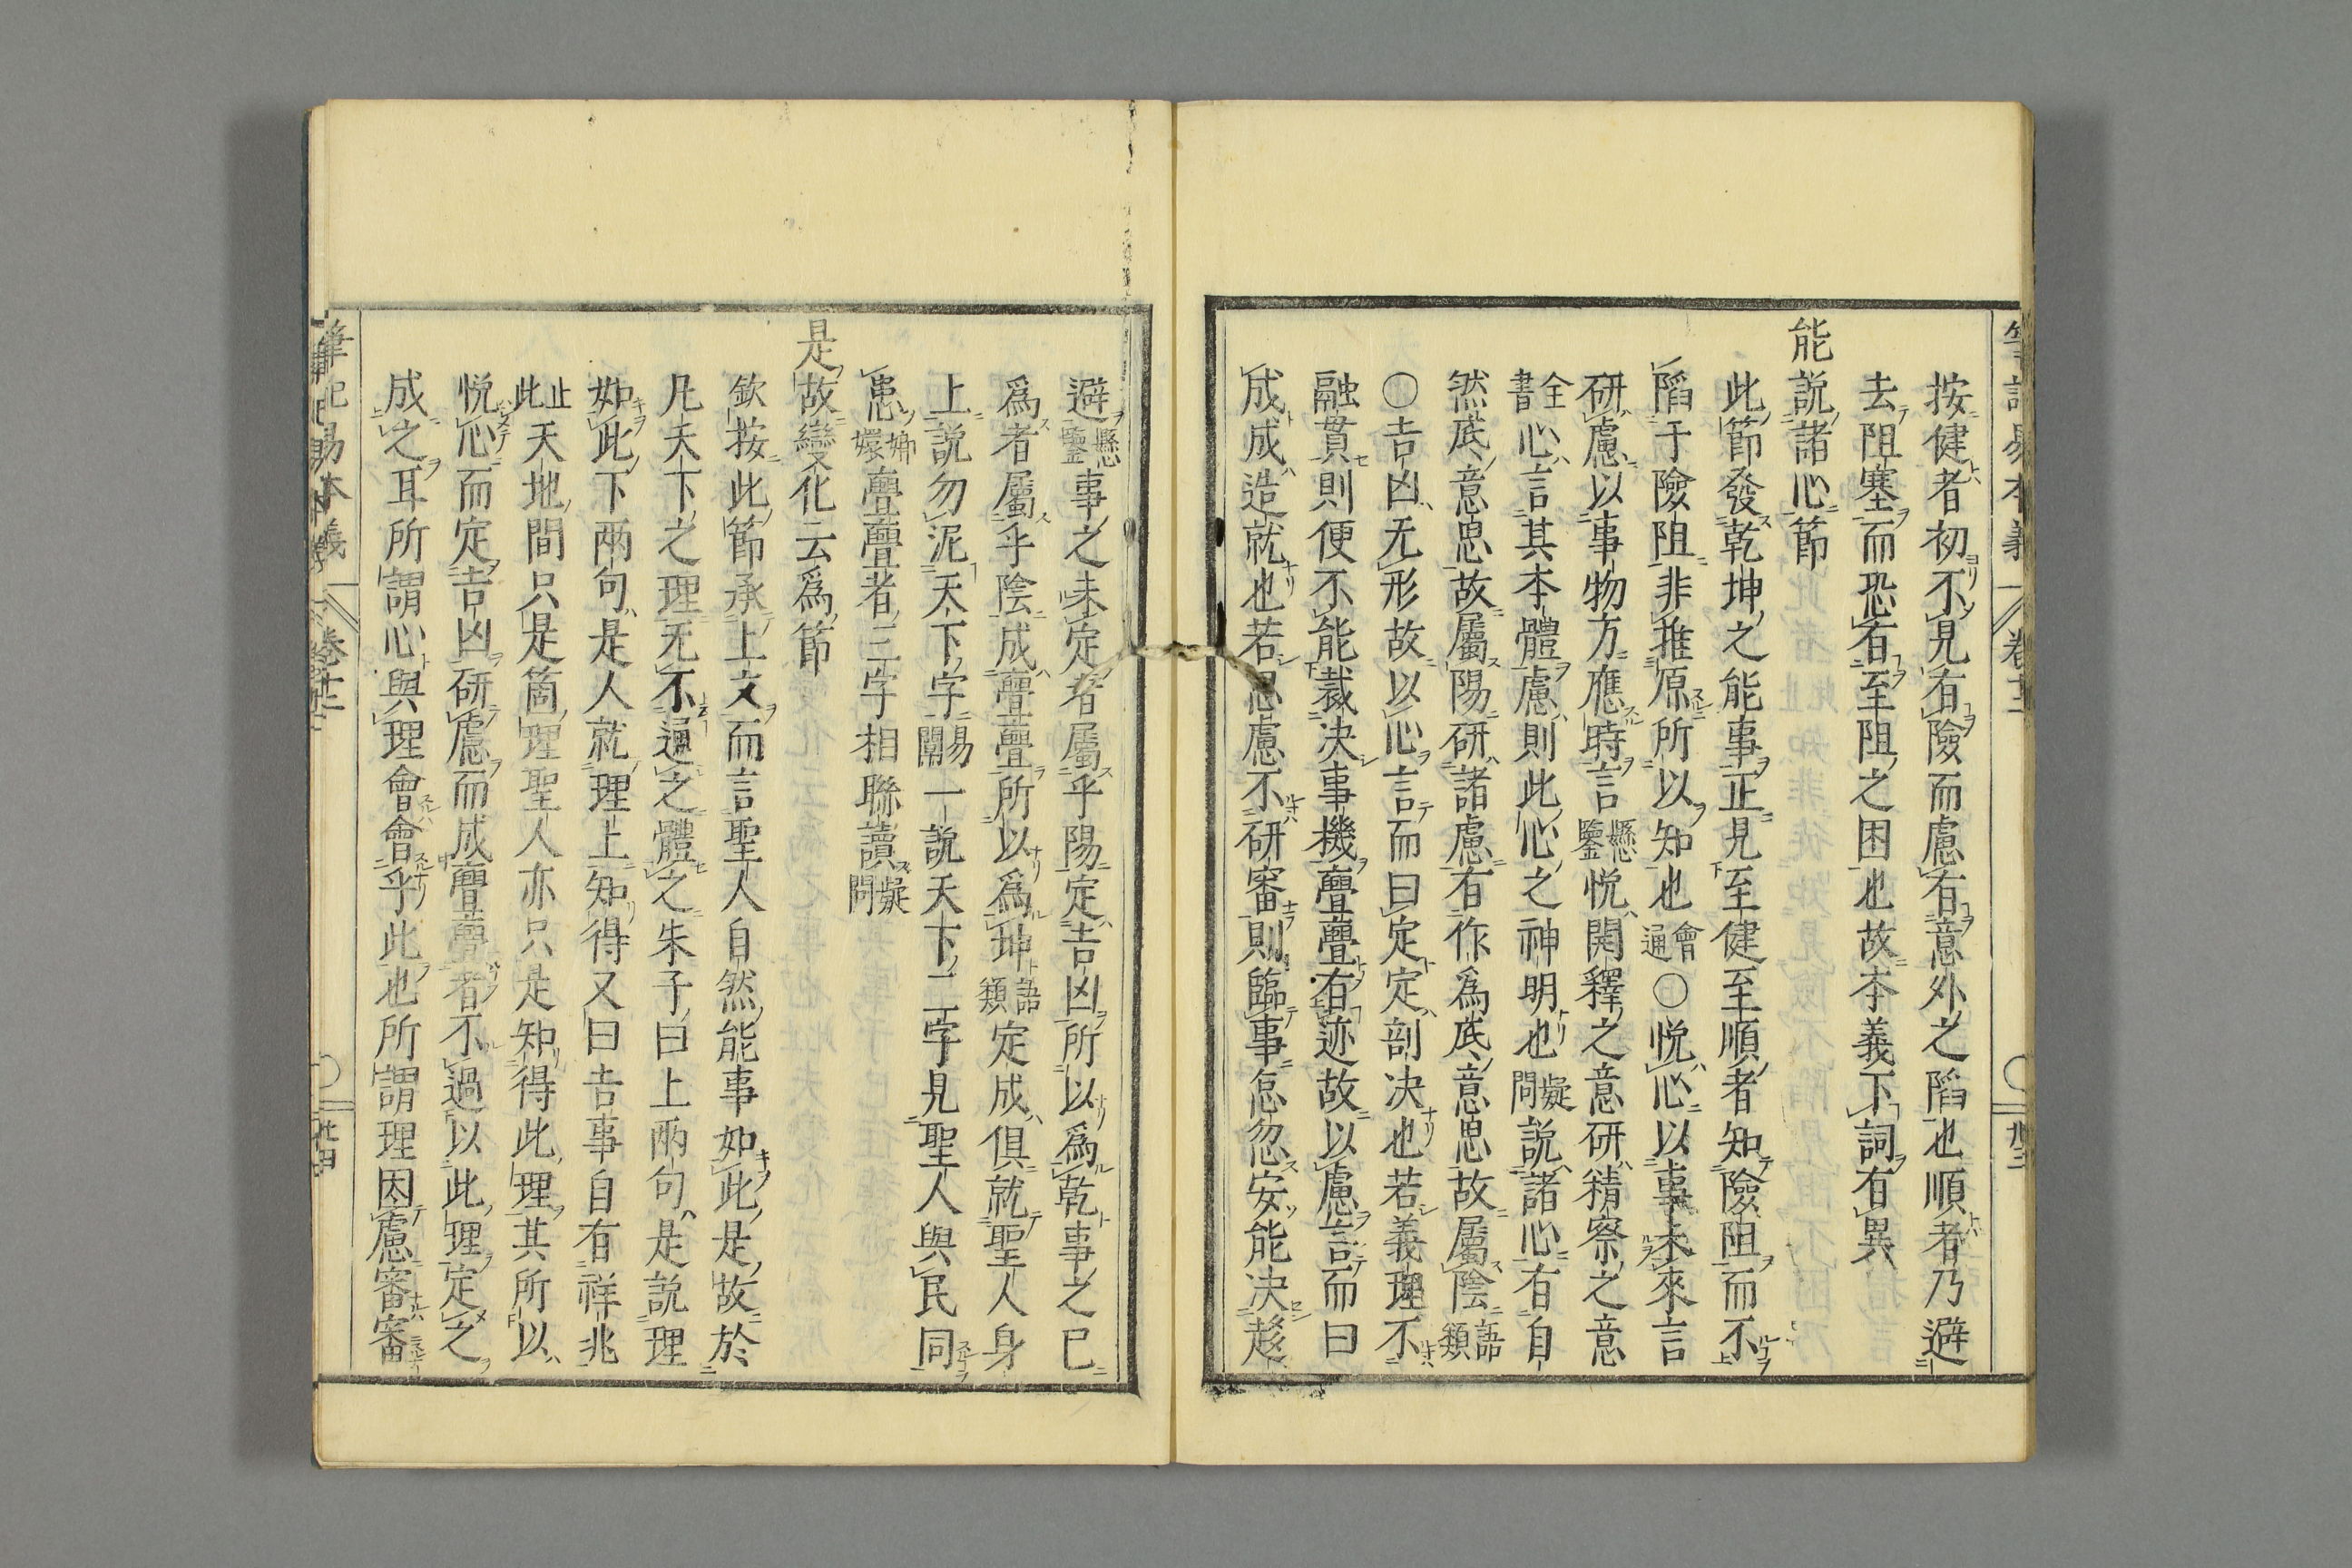 按健者初不見有險而慮有意外之陷也順者乃避
去阻塞而恐有至阻之困也故本義下詞有異
能說諸心節
此節發乾坤之能事正見至健至順者知險阻而不
陷于險阻非推原所以知也會通○悅心以事未來言
研慮以事物方應時言懸鑒悅開釋之意研精察之意
全書心言其本體慮則此心之神明也疑問說諸心有自
然底意思故屬陽研諸慮有作爲底意思故屬陰語類
○吉凶无形故以心言而曰定定剖决也若義理不
融貫則便不能裁决事機亹亹有迹故以慮言而曰
成成造就也若思慮不研審則臨事怠忽安能决趍
避懸鑒事之未定者屬乎陽定吉凶所以爲乾事之已
爲者屬乎陰成亹亹所以爲坤語類定成俱就聖人身
上說勿泥天下字易闡一說天下二字見聖人與民同
患嫏嬛亹亹者三字相聯讀疑問
是故變化云爲節
欽按此節承上文而言聖人自然能事如此是故於
凡天下之理无不通之體之朱子曰上兩句是說理
如此下兩句是人就理上知得又曰吉事自有祥兆
止此天地間只是箇理聖人亦只是知得此理其所以
悅心而定吉凶研慮而成亹亹者不過以此理定之
成之耳所謂心與理會會乎此也所謂理因慮審審